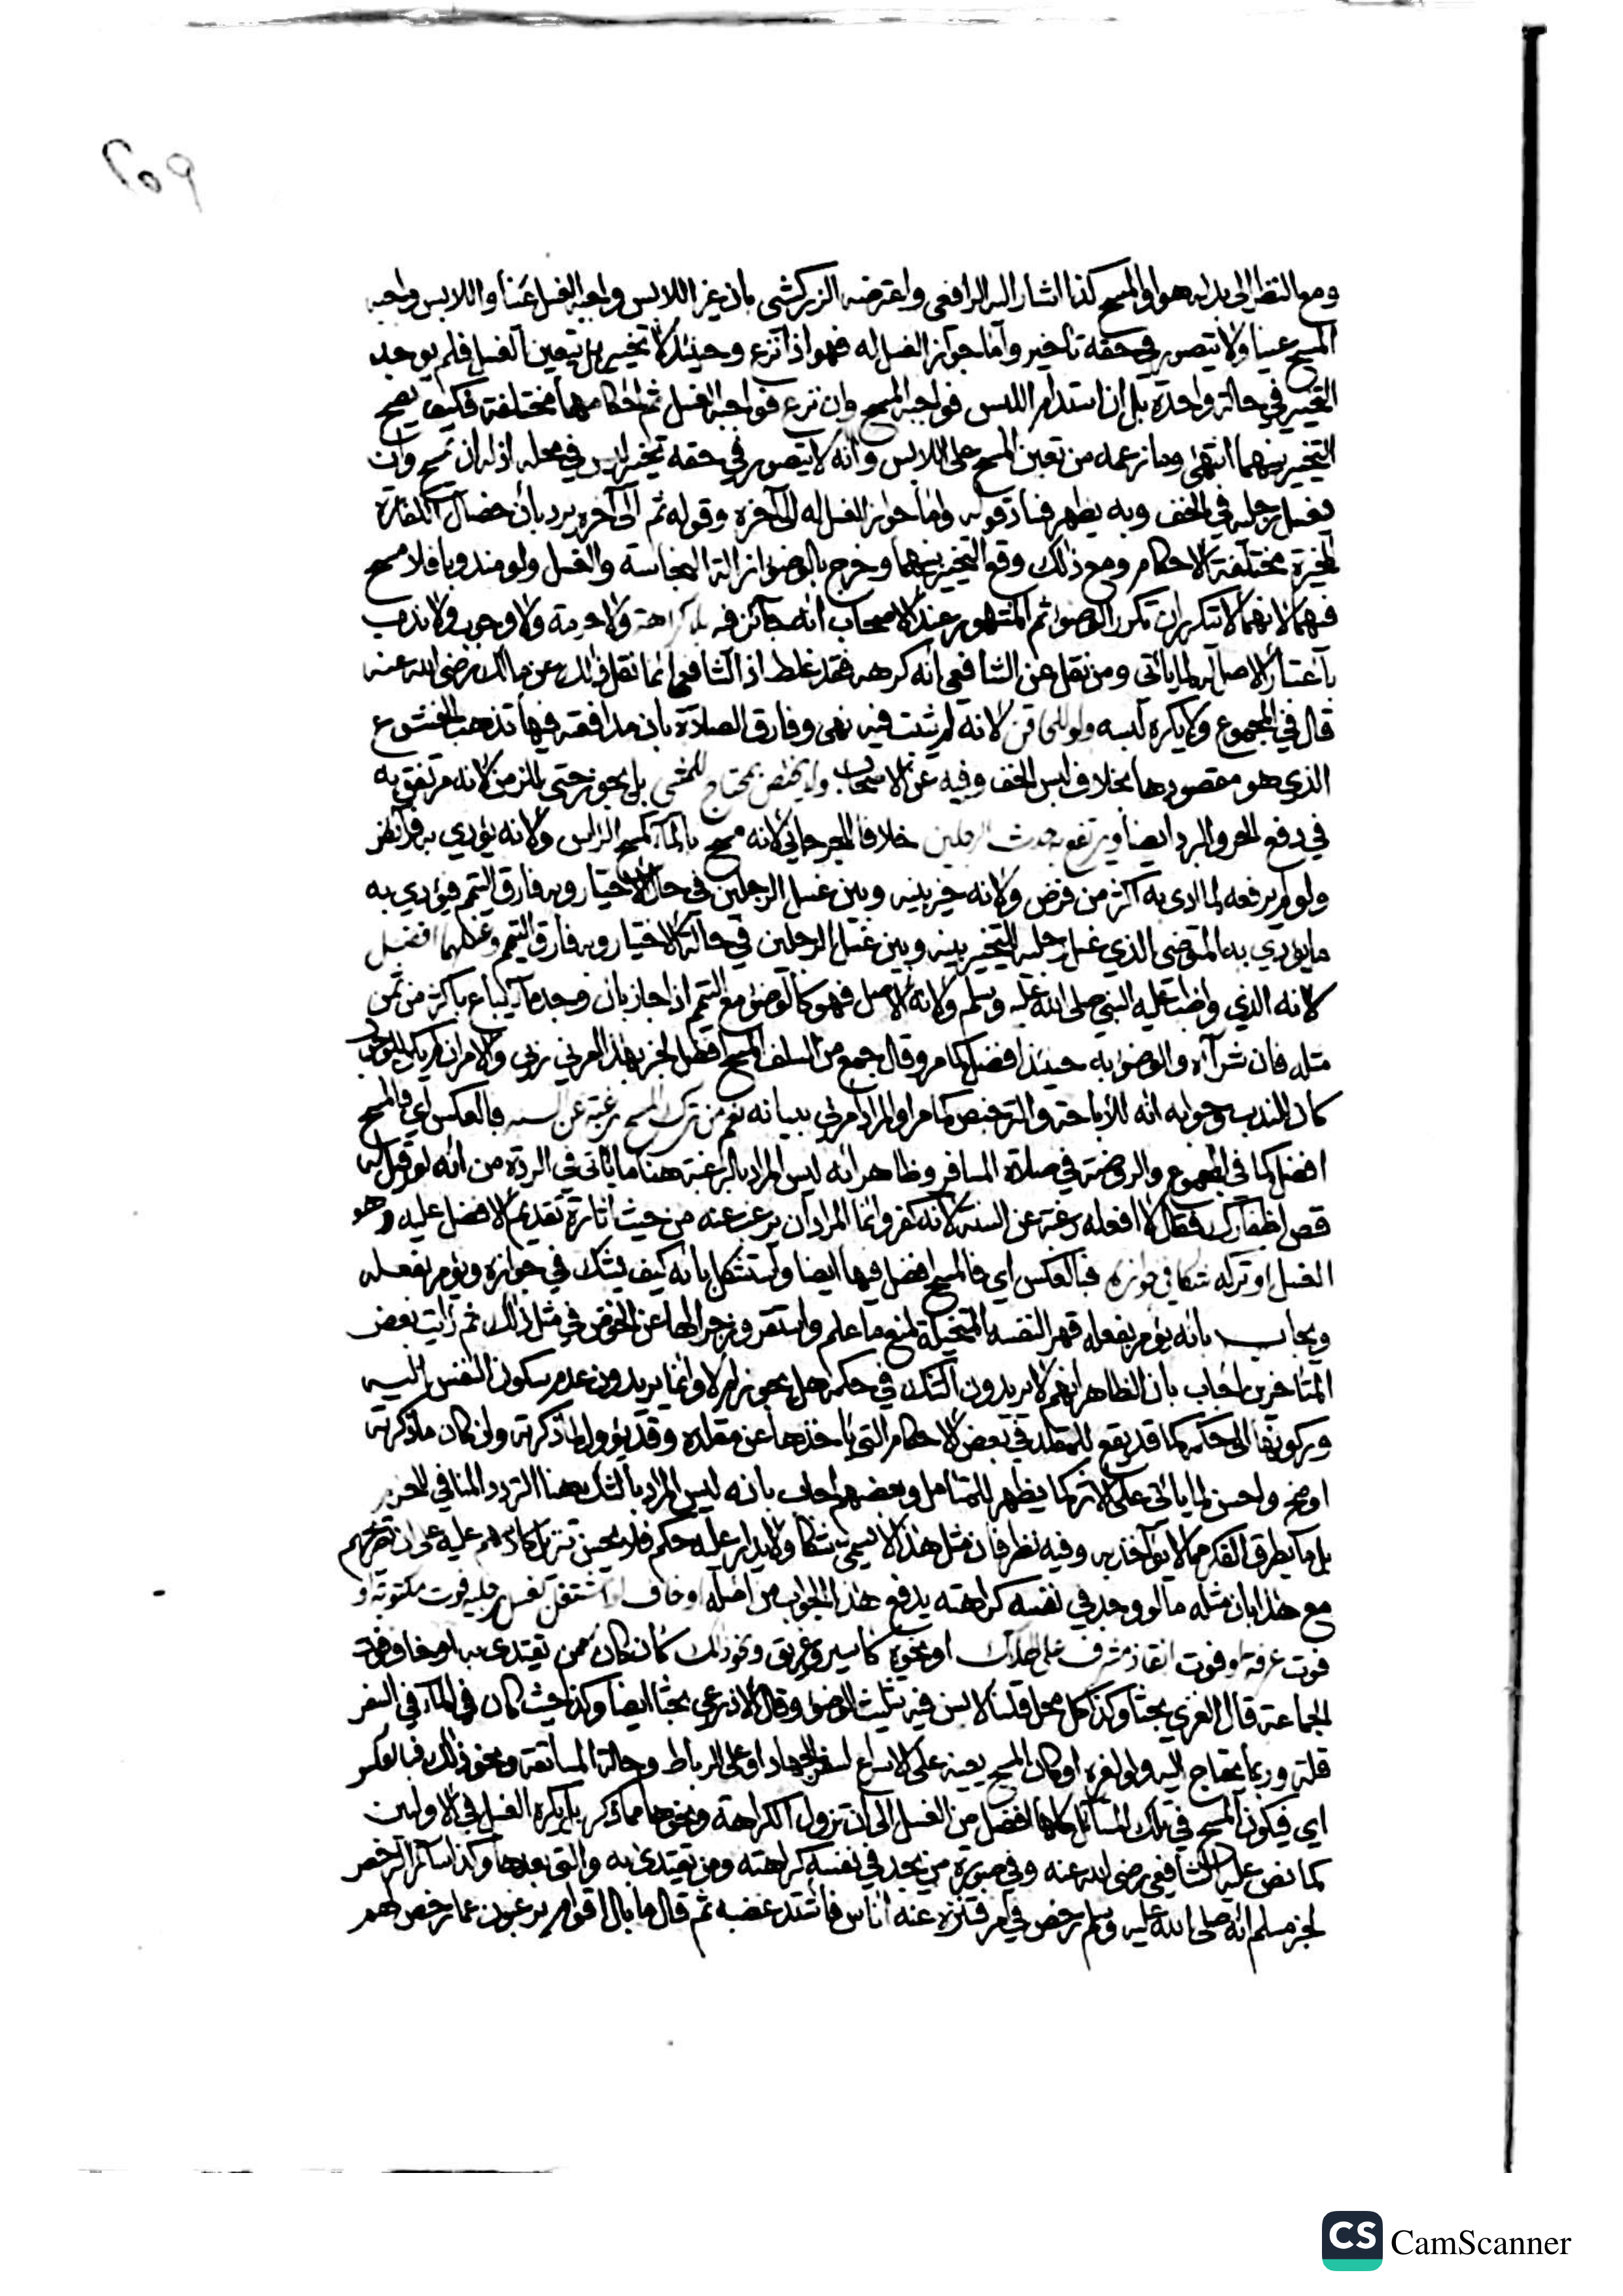 ومع النظر الى بدله هو او المسح كذا اشار اليه الرافعي واعترضه الزركشي بان غير اللابس واجبه الغسل عينا واللابس واجبه
المسح عينا ولا يتصور في حقه تأخير واما جواز الغسل له فهو اذا نزع وحينئذ لا تخيير بل يتعين الغسل فلم يوجد
التخيير في حالة واحدة بل ان استدام اللبس فواجبه المسح وان نزع فواجبه الغسل ثم احكامهما مختلفة فكيف يصح
التخيير بينهما انتهى وما زعمه من تعين المسح على اللابس وانه لا يتصور في حقه تخيير ليس في محله اذ له ان يمسح وان
يغسل رجليه في الخف وبه يظهر فساد قوله واما جواز الغسل له الى آخره وقوله ثم الى آخره يرد بأن خصال الكفارة
المخيرة مختلفة الاحكام ومع ذلك وقع التخيير بينهما وخرج بالوضوء ازالة النجاسة والغسل ولو مندوبا فلا مسح
فيهما لانهما لا يتكرران تكرر الوضوء ثم المشهور عند الاصحاب انه جائز فيه بلا كراهة ولا حرمة ولا وجوب ولا ندب
باعتبار الاصالة لما يأتي ومن نقل عن الشافعي انه كرهه فقد غلط اذ الشافعي انما نقل ذلك عن مالك رضي الله عنه
قال في المجموع ولا يكره لبسه ولو للحاقن لانه لم يثبت فيه نهي وفارق الصلاة بان مدافعته فيها تذهب الخشوع
الذي هو مقصودها بخلاف لبس الخف وفيه عن الاصحاب ولا يختص بمحتاج للمشي بل يجوز حتى للزمن لانه مرتفق به
في دفع الحر والبرد ايضا ويرتفع به حدث الرجلين خلافا للجرجاني لانه مسح بالماء كمسح الرأس ولانه يؤدي به فرائض
ولو لم يرفعه لما ادى به اكثر من فرض ولانه خير بينه وبين غسل الرجلين في حال الاختيار وبه فارق التيمم فيؤدي به
ما يؤدي به المتوضي الذي غسل رجليه التخيير بينه وبين غسل الرجلين في حالة الاختيار وبه فارق التيمم وغسلهما افضل
لانه الذي واظب عليه النبي صلى الله عليه وسلم ولانه الاصل فهو كالوضوء مع التيمم اذا جاز بان وجد ماء يباع باكثر من ثمن
مثله فان شرآه والوضوء به حينئذ افضل كما مر وقال جمع من السلف المسح افضل لخبر بهذا امرني ربي والامر ان لم يكن للوجوب
كان للندب وجوابه انه للاباحة والترخيص كما مر او المراد امرني ببيانه نعم من ترك المسح رغبة عن السنه فبالعكس اي فالمسح
افضل كما في المجموع والروضة في صلاة المسافر وظاهر انه ليس المراد بالرغبة هنا ما يأتي في الردة من انه لو قيل له
قص اظفارك فقال لا افعله رغبة عن السنة لانه كفر وانما المراد ان يرغب عنه من حيث ايثاره تقديم الافضل عليه وهو
الغسل او تركه شكا في جوازه فبالعكس اي فالمسح افضل فيها ايضا واستشكل بانه كيف يشك في جوازه ويؤمر بفعله
ويجاب بانه يؤمر بفعله قهر النفسه المتخيلة لمنع ما علم واستقر وزجرا لها عن الخوض في مثل ذلك ثم رايت بعض
المتاخرين اجاب بان الظاهر انهم لا يريدون الشك في حكمه هل يجوز ام لا وانما يريدون عدم سكون النفس اليه
وركونها الى حكمه كما قد يقع للمقلد في بعض الاحكام التي ياخذها عن مقلده وقد يؤول لما ذكرته وان كان ما ذكرته
اوضح واحسن لما يأتي على الاثر كما يظهر للمتامل وبعضهم اجاب بانه ليس المراد بالشك هنا التردد المنافي للجزم
بل ما يطرق الفكر مما لا يؤاخذ به وفيه نظر فان مثل هذا لا يسمى شكا ولا يدار عليه حكم فلا يحسن تنزيل كلامهم عليه على ان تصريحهم
مع هذا بان مثله ما لو وجد في نفسه كراهته يدفع هذا الجواب من اصله او خاف لو اشتغل بغسل رجليه فوت مكتوبة او
فوت عرفة او فوت انقاذ مشرف على هلاك او نحوه كاسير وغريق ونحو ذلك كان كان ممن يقتدى به او خاف فوت
الجماعة قال الغزي بحثا وكذا كل محل قلنا لا يسن فيه تثليث الوضوء وقال الاذرعي بحثا ايضا وكذا حيث كان في الماء في السفر
قلة وربما يحتاج اليه ولو لغيره او كان المسح يعينه على الاسراع لسفر الجهاد او على الرباط وحالة المسابقة ونحو ذلك فبالعكس
اي فيكون المسح في تلك المسائل كلها افضل من الغسل الى ان تزول الكراهة ونحوها مما ذكر بل يكره الغسل في الاوليين
كما نص عليه الشافعي رضي الله عنه وفي صورة من يجد في نفسه كراهته ومن يقتدى به والتي بعدها وكذا سائر الرخص
لخبر مسلم انه صلى الله عليه وسلم رخص في امر فتنزه عنه اناس فاشتد غضبه ثم قال ما بال اقوام يرغبون عما رخص لهم
CS CamScanner